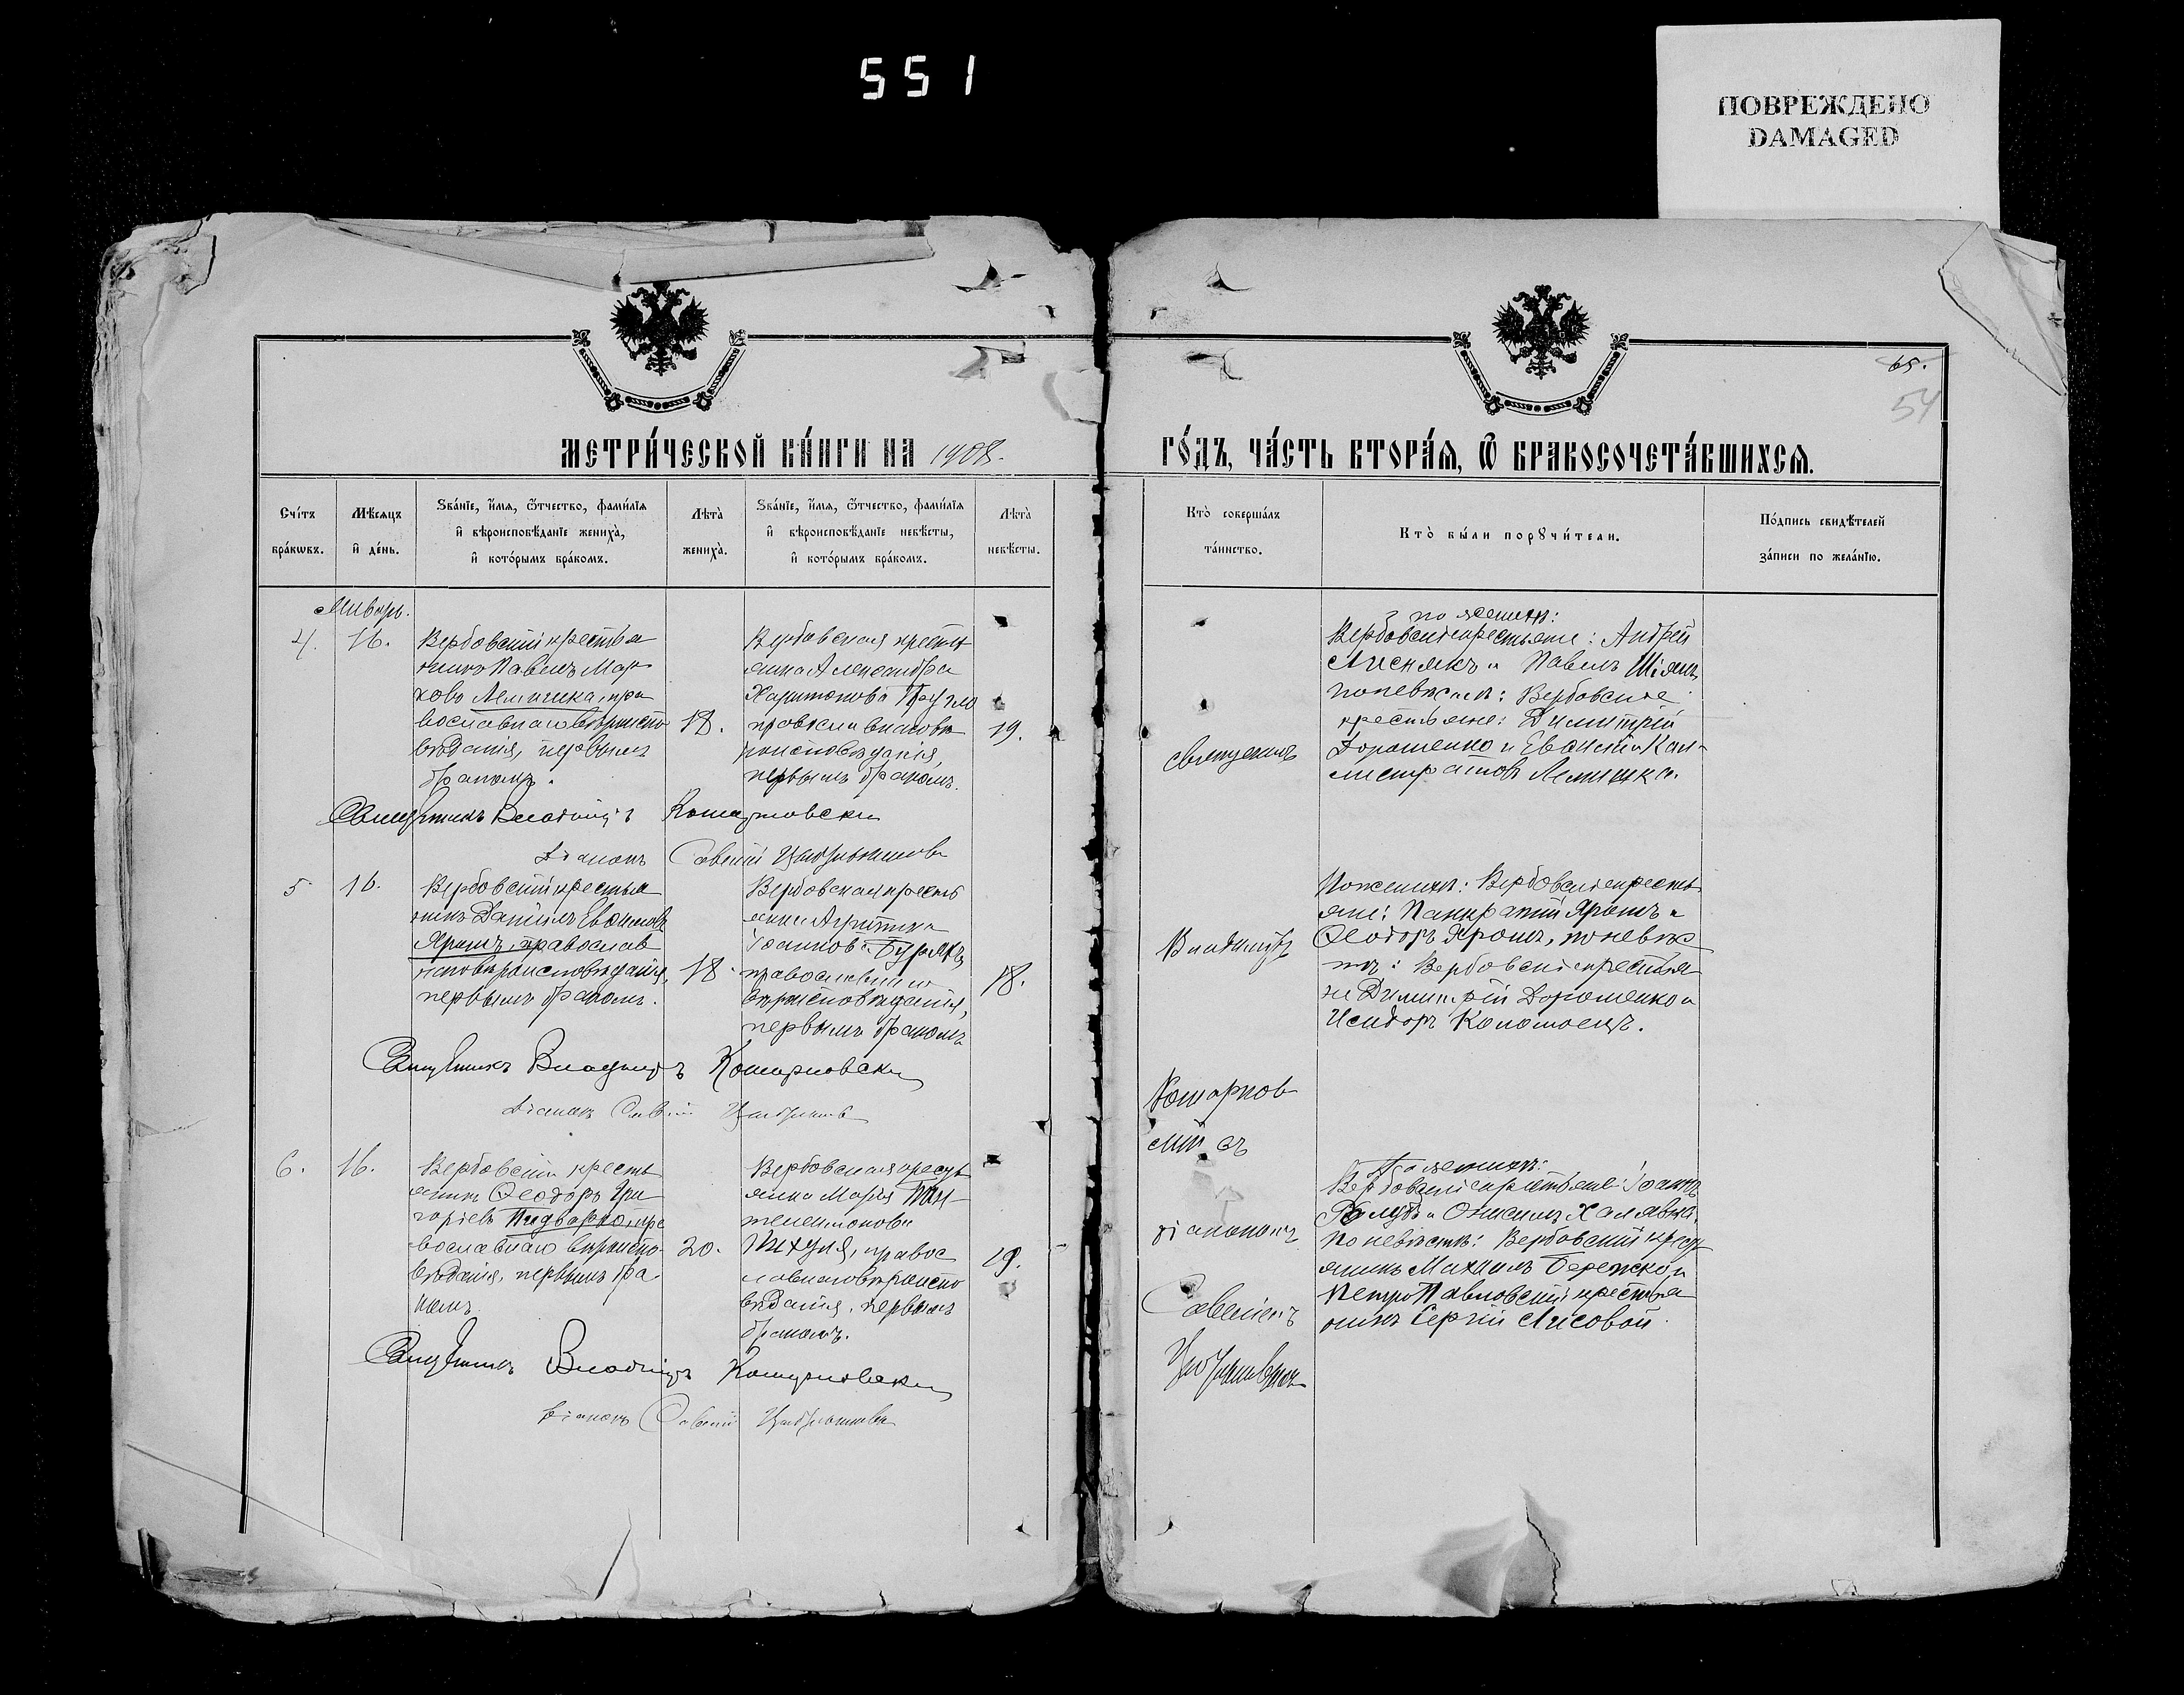 551
ПОВРЕЖДЕНО
DAMAGED
65.
54
МЕТРИ́ЧЕСКОЙ КНИ́ГИ НА 1908.
ГО́ДЪ, ЧА́СТЬ ВТОРА́Я, Ѡ БРАКОСОЧЕТА́ВШИХСЯ.
Сче́тъ
бра́кѡвъ.
Мѣ́сяцъ
и҆ де́нь.
Ѕва́нїе, и҆́мя, ѻ҆́тчество, фами́лїя
и҆ вѣроисповѣ́данїе жениха̀,
и҆ кото́рымъ бра́комъ.
Лѣ́та
жениха̀.
Ѕва́нїе, и҆́мя, ѻ҆́тчество, фами́лїя
и҆ вѣроисповѣ́данїе невѣ́сты,
и҆ кото́рымъ бра́комъ.
Лѣ́та
невѣ́сты.
Кто̀ соверша́лъ
та́инство.
Кто̀ бы́ли порꙋчи́тели.
По́дпись свидѣ́телей
за́писи по жела́нїю.
Январь.
4.
16.
Вербовскій крестья
нинъ Павелъ Мар
ковъ Лемишка, пра
вославнаго вѣроиспо
вѣданія, первымъ
бракомъ.
18.
Вербовская кресть
янка Александра
Харитонова
православнаго вѣ
роисповѣданія,
первымъ бракомъ.
19.
Священникъ
по женихѣ:
Вербовскіе крестьяне: Андрей
Лиснякъ и Павелъ Шіянъ,
по невѣстѣ: Вербовскіе
крестьяне: Димитрій
Дорошенко и Евѳимій Кал
листратовъ Лемишка.
Священникъ Владиміръ Комарновскій
Діаконъ Савелій
5
16.
Вербовскій крестья
нинъ Даніилъ Евѳимовъ
Ярошъ, православ
наго вѣроисповѣданія,
первымъ бракомъ.
18.
Вербовская кресть
янка Агриппина
Іоаннова Бурякъ,
православнаго
вѣроисповѣданія,
первымъ бракомъ
18.
Владиміръ
По женихѣ: Вербовскіе кресть
яне: Панкратій Ярошъ и
Ѳеодоръ Ярошъ, по невѣс
тѣ: Вербовскіе крестья
не Димитрій Дорошенко и
Исидоръ Коломоецъ.
Священникъ Владиміръ Комарновскій
Діаконъ Савелій
Комарнов
скій съ
6.
16.
Вербовскій кресть
янинъ Ѳеодоръ Гри
горіевъ Пидварко, пра
вославнаго вѣроиспо
вѣданія, первымъ бра
комъ.
20.
Вербовская кресть
янка Марія Пан
телеимонова
Пихуля, правос
лавнаго вѣроиспо
вѣданія, первымъ
бракомъ.
19.
діакономъ
Савеліемъ
По женихѣ:
Вербовскіе крестьяне: Іоаннъ
Голубъ и Онисимъ Халявка,
По невѣстѣ: Вербовскій крест
янинъ Михаилъ Бережко, и
Петропавловскій крестья
нинъ Сергій Лисовой.
Священникъ Владиміръ Комарновскій
Діаконъ Савелій